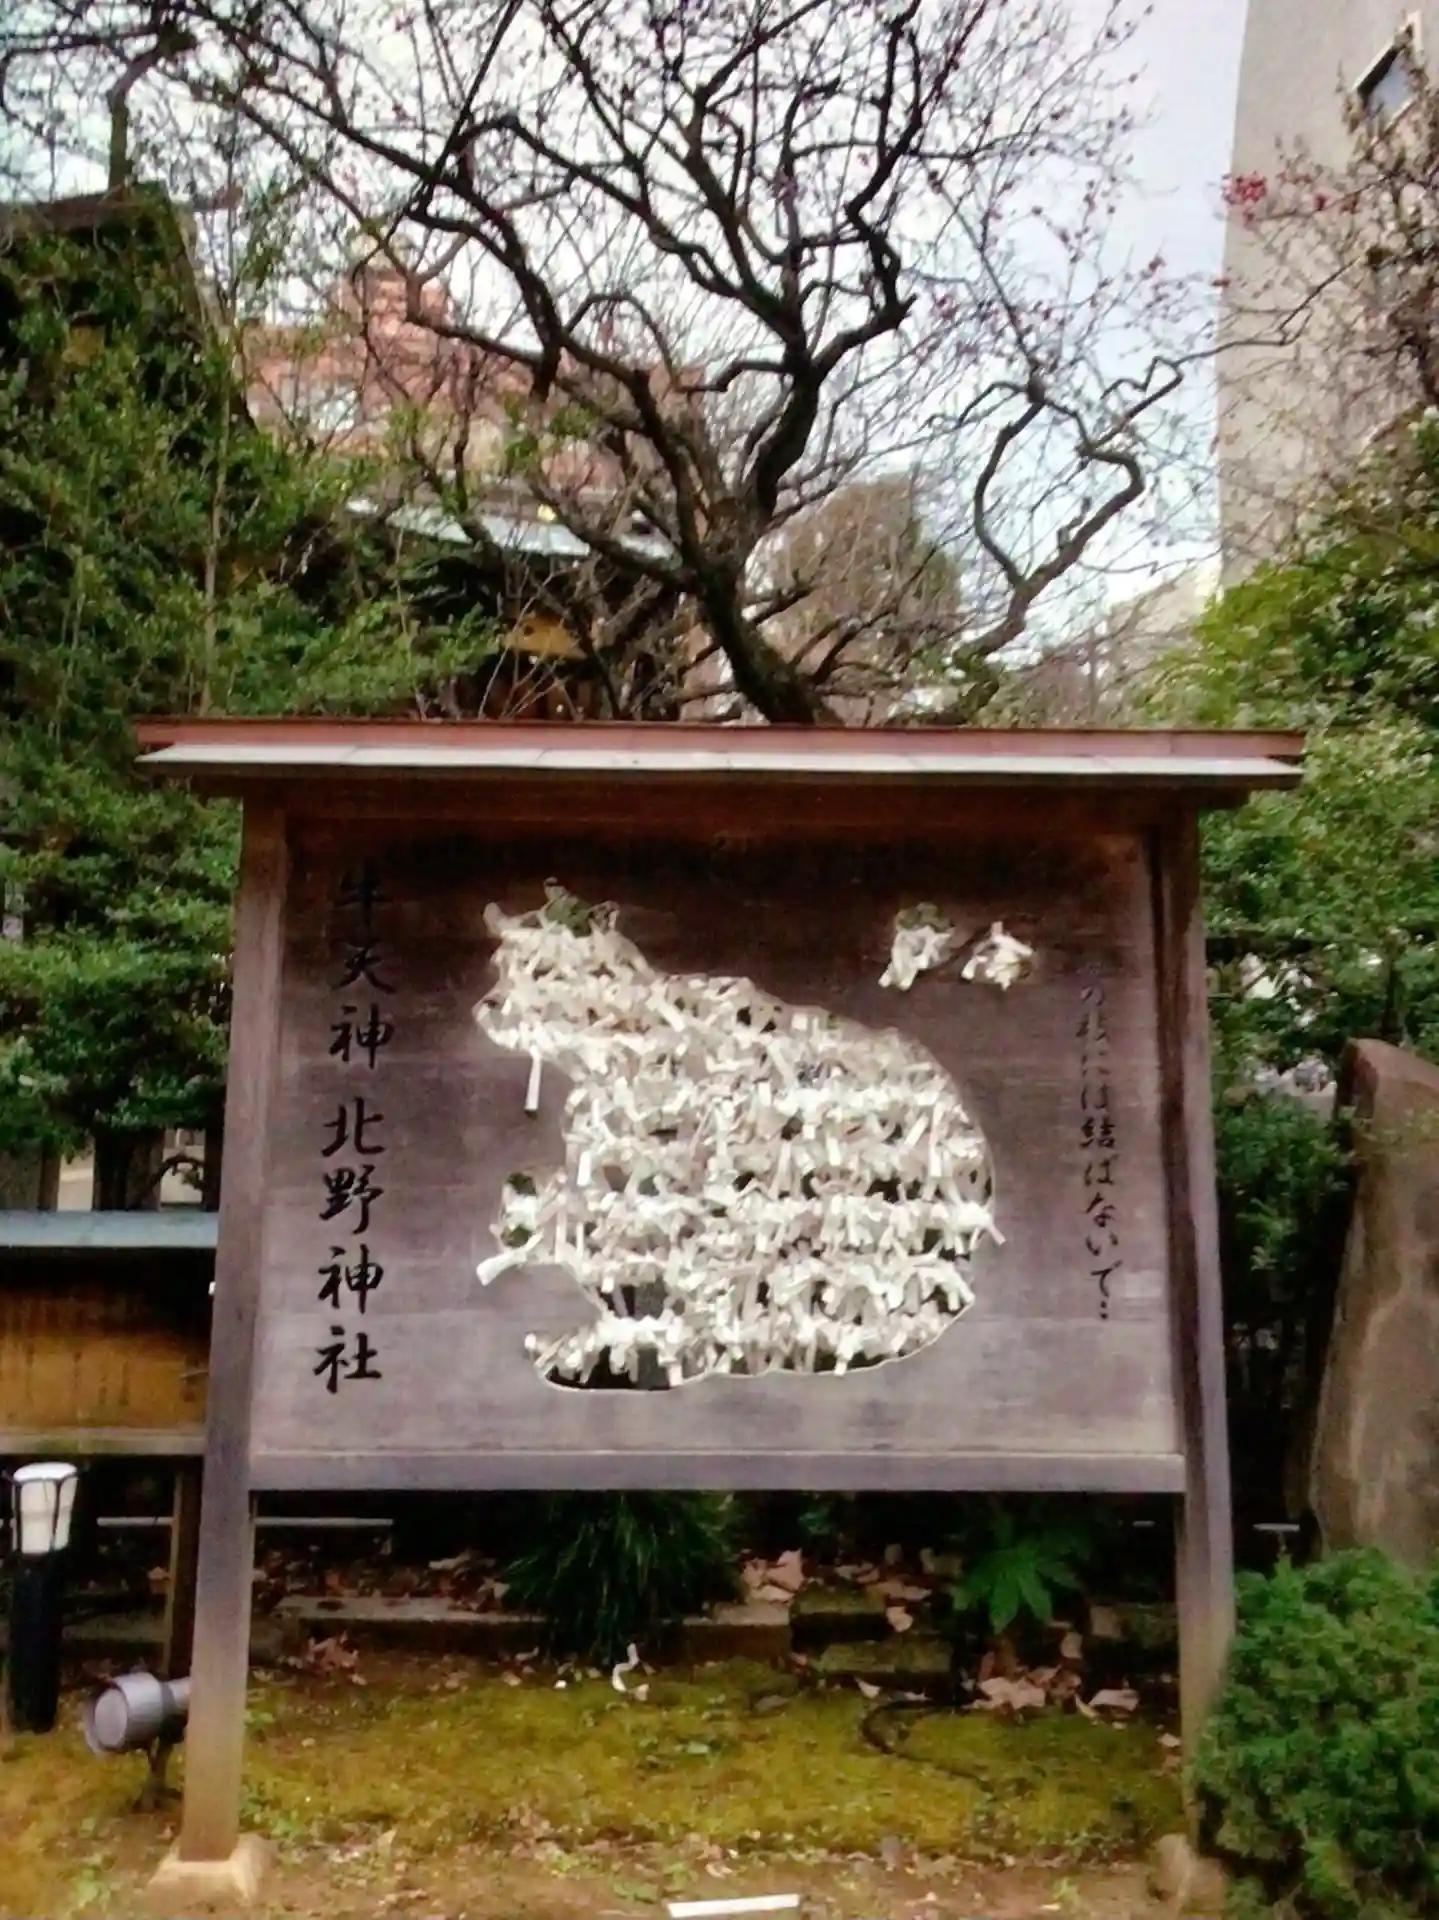 の枝には結ばないで…
牛天神北野神社